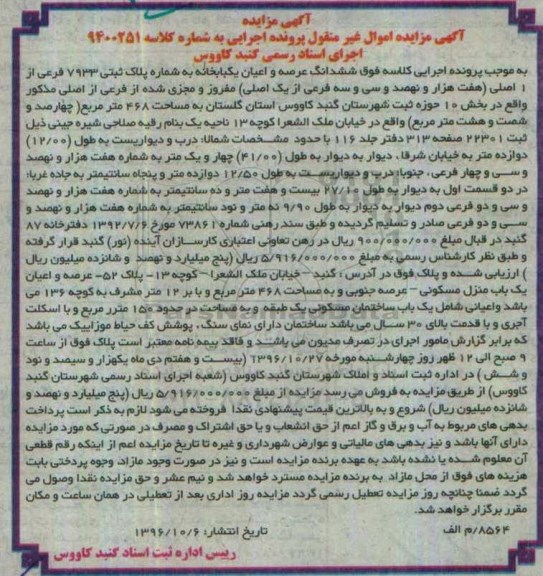 آگهی مزایده
آگهی مزایده اموال غیر منقول پرونده اجرایی به شماره کلاسه ۹۴۰۰۲۵۱
اجرای اسناد رسمی گنبد کاووس
به موجب پرونده اجرایی کلاسه فوق ششدانگ عرصه و اعیان یکبابخانه به شماره پلاک ثبتی ۷۹۳۳ فرعی از
۱ اصلی (هفت هزار و نهصد و سی و سه فرعی از یک اصلی) مفروز و مجزی شده از فرعی از اصلی مذکور
واقع در بخش ۱۰ حوزه ثبت شهرستان گنبد کاووس استان گلستان به مساحت ۴۶۸ متر مربع( چهارصد و
شصت و هشت متر مربع) واقع در خیابان ملک الشعرا کوچه ۱۳ ناحیه یک بنام رقیه صلاحی شیره جینی ذیل
ثبت ۲۲۳۰۱ صفحه ۳۱۳ دفتر جلد ۱۱۶ با حدود مشخصات شمالا: درب و دیواریست به طول (۱۲/۰۰)
دوازده متر به خیابان شرقا ، دیوار به دیوار به طول (۴۱/۰۰) چهار و یک متر به شماره هفت هزار و نهصد
و سی و چهار فرعی ، جنوبا: درب و دیواریست به طول ۱۲/۵۰ دوازده متر و پنجاه سانتیمتر به جاده غربا:
در دو قسمت اول به دیوار به طول ۲۷/۱۰ بیست و هفت متر و ده سانتیمتر به شماره هفت هزار و نهصد
و سی و دو فرعی دوم دیوار به دیوار به طول ۹/۹۰ نه متر و نود سانتیمتر به شماره هفت هزار و نهصد و
سی و دو فرعی صادر و تسلیم گردیده و طبق سند رهنی شماره ۷۳۸۶۱ مورخ ۱۳۹۲/۷/۶ دفترخانه ۸۷
گنبد در قبال مبلغ ۹۰۰/۰۰۰/۰۰۰ ریال در رهن تعاونی اعتباری کارسازان آینده (نور) گنبد قرار گرفته
و طبق نظر کارشناس رسمی به مبلغ ۵/۹۱۶/۰۰۰/۰۰۰ ریال (پنج میلیارد و نهصد و شانزده میلیون ریال
) ارزیابی شده و پلاک فوق در آدرس : گنبد – خیابان ملک الشعرا – کوچه ۱۳ – پلاک ۵۲ – عرصه و اعیان
یک باب منزل مسکونی – عرصه جنوبی و به مساحت ۴۶۸ متر مربع و با بر ۱۲ متر مشرف به کوچه ۱۳۶ می
باشد واعیانی شامل یک باب ساختمان مسکونی یک طبقه و به مساحت در حدود ۱۵۰ متر مربع و با اسکلت
آجری و با قدمت بالای ۳۰ سال می باشد ساختمان دارای نمای سنگ ، پوشش کف حیاط موزاییک می باشد
که برابر گزارش مامور اجرای در تصرف مدیون می باشد و فاقد بیمه نامه معتبر است پلاک فوق از ساعت
۹ صبح الی ۱۲ ظهر روز چهارشنبه مورخه ۱۳۹۶/۱۰/۲۷ (بیست و هفتم دی ماه یکهزار و سیصد و نود
و شش ) در اداره ثبت اسناد و املاک شهرستان گنبد کاووس (شعبه اجرای اسناد رسمی شهرستان گنبد
کاووس) از طریق مزایده به فروش می رسد مزایده از مبلغ ۵/۹۱۶/۰۰۰/۰۰۰ ریال (پنج میلیارد و نهصد و
شانزده میلیون ریال) شروع و به بالاترین قیمت پیشنهادی نقدا فروخته می شود لازم به ذکر است پرداخت
بدهی های مربوط به آب و برق و گاز اعم از حق انشعاب و یا حق اشتراک و مصرف در صورتی که مورد مزایده
دارای آنها باشد و نیز بدهی های مالیاتی و عوارض شهرداری و غیره تا تاریخ مزایده اعم از اینکه رقم قطعی
آن معلوم شده یا نشده باشد به عهده برنده مزایده است و نیز در صورت وجود مازاد وجوه پرداختی بابت
هزینه های فوق از محل مازاد به برنده مزایده مسترد خواهد شد و نیم عشر و حق مزایده نقدا وصول می
گردد ضمنا چنانچه روز مزایده تعطیل رسمی گردد مزایده روز اداری بعد از تعطیلی در همان ساعت و مکان
مقرر برگزار خواهد شد.
۸۵۶۴/م الف تاریخ انتشار: ۱۳۹۶/۱۰/۶
رییس اداره ثبت اسناد گنبد کاووس